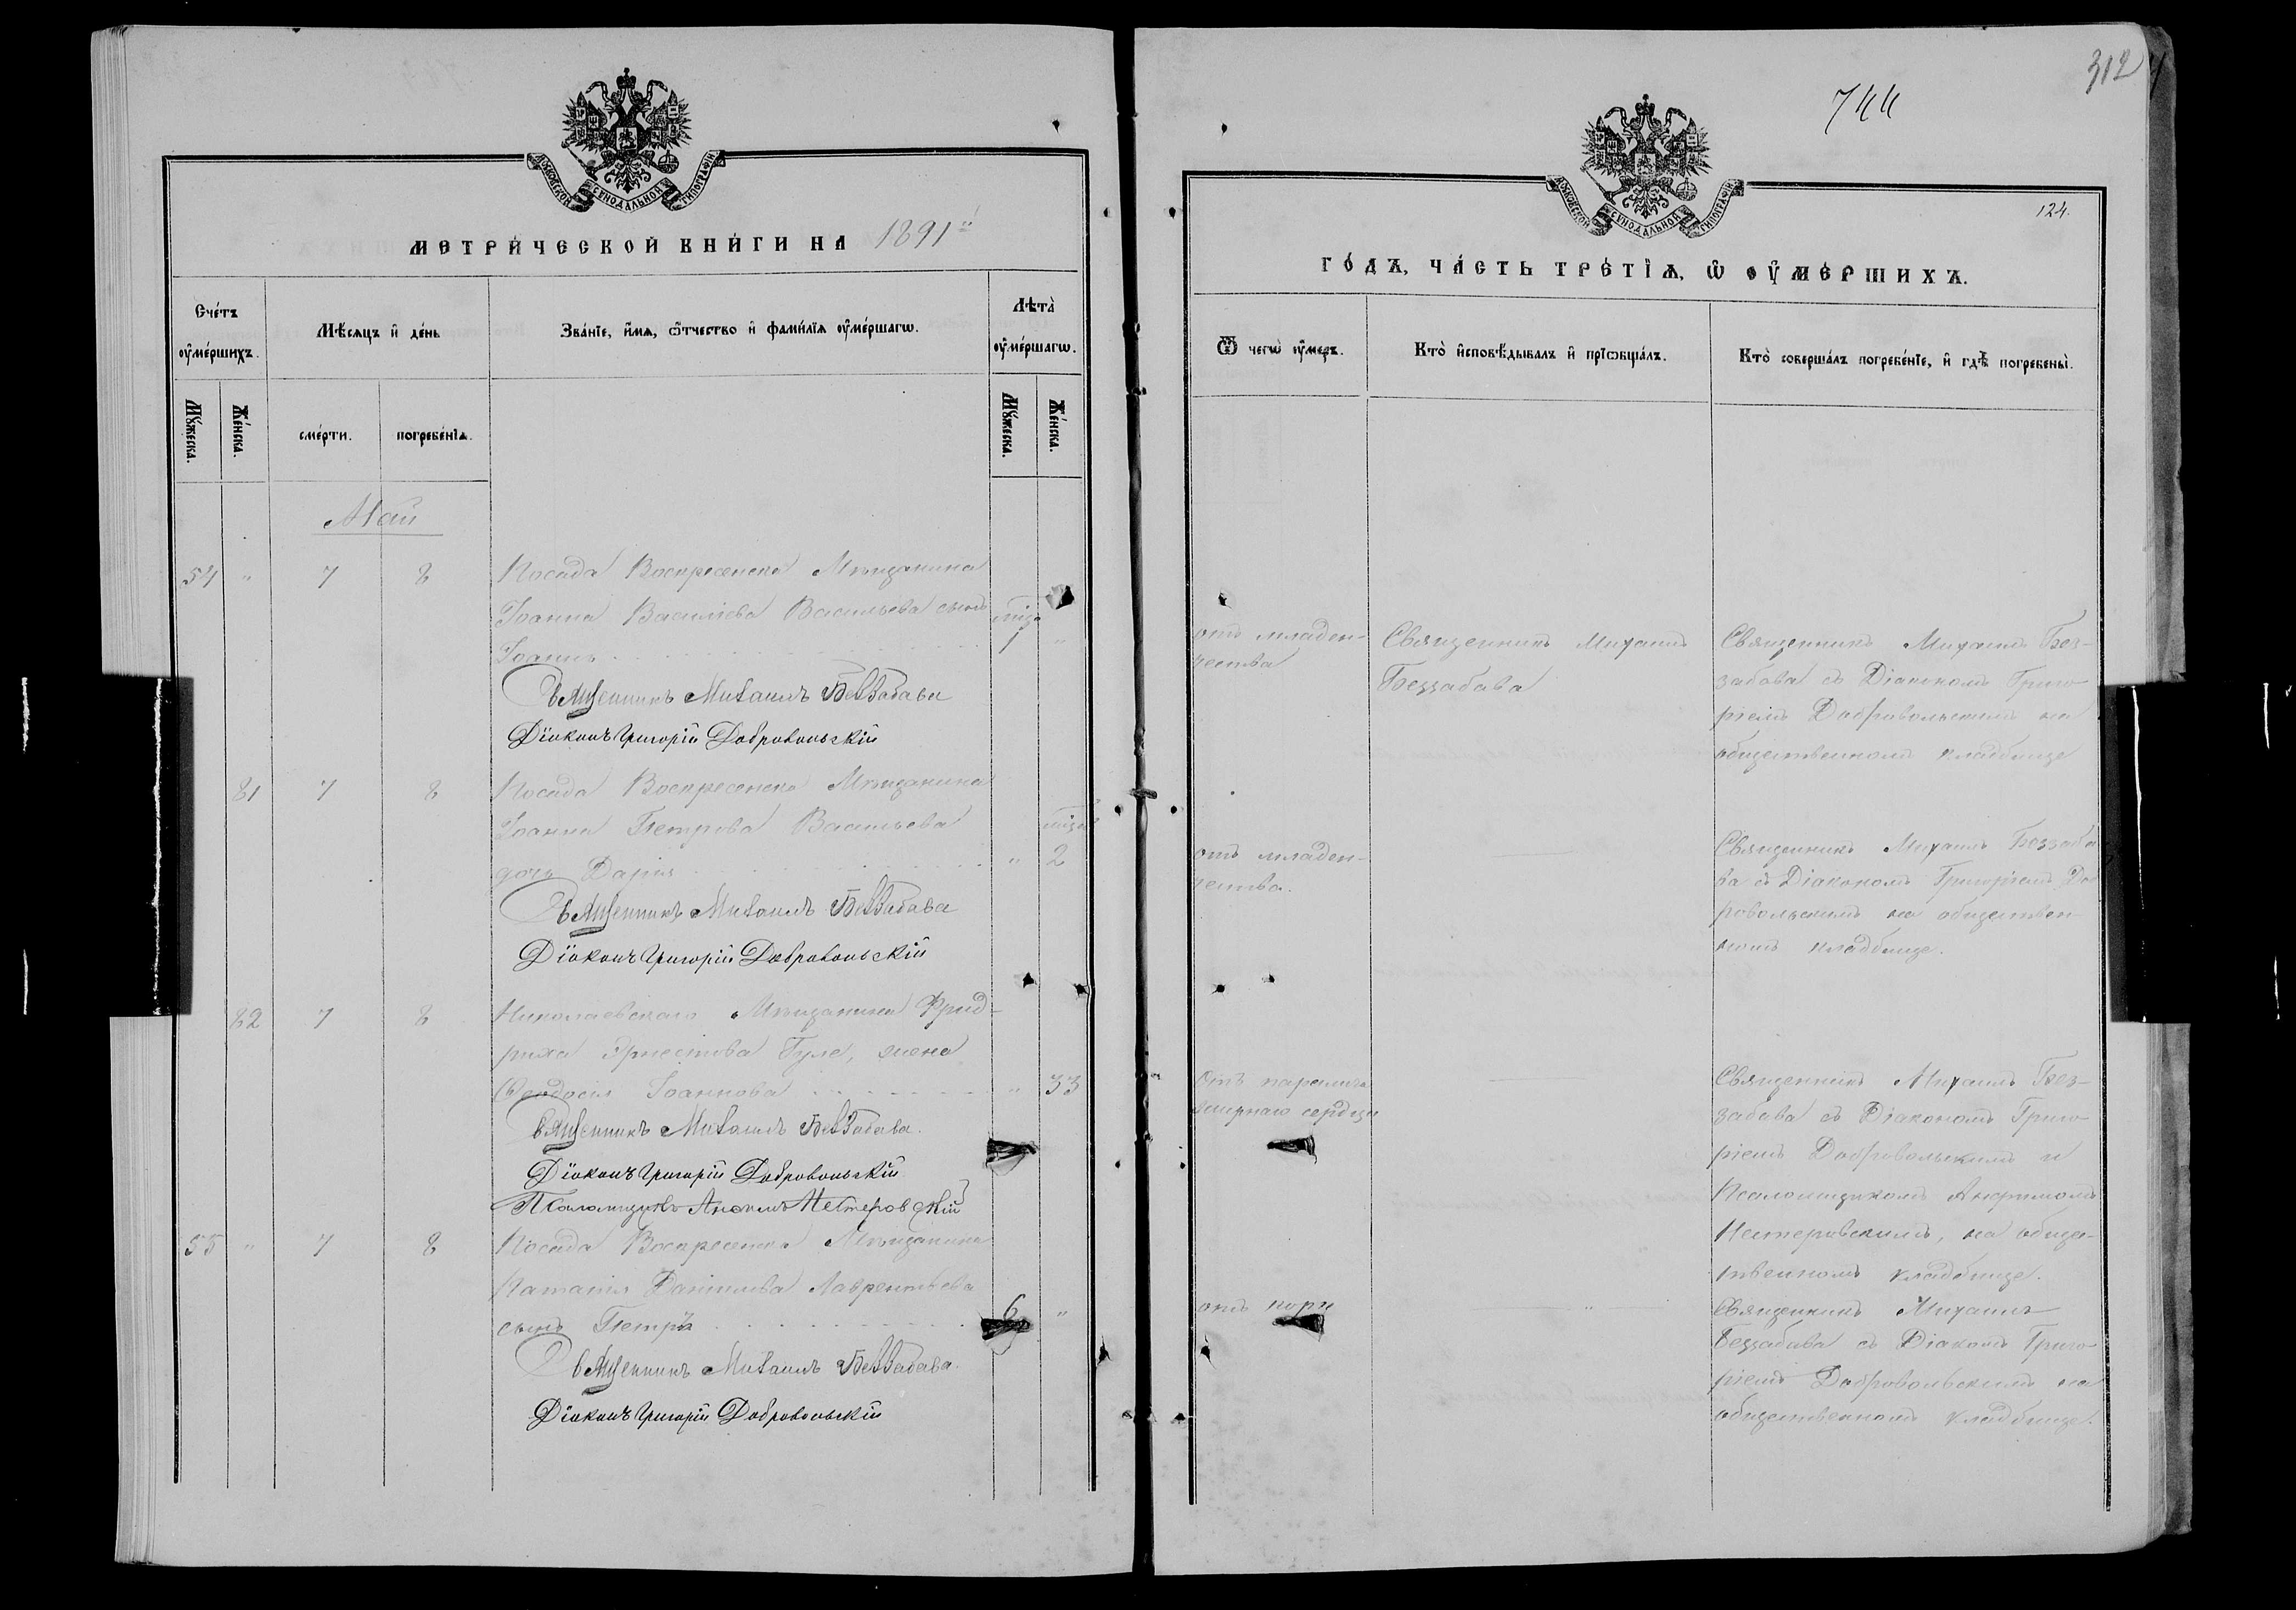 312
744
124.
МОСКОВСКОЙ СѴНОДАЛЬНОЙ ТИПОГРАФІИ
МЕТРИЧЕСКОЙ КНИГИ НА 1891й
Счетъ ѹмершихъ.
Мѣсяцъ и день
Званіе, имя, ѿчество и фамилія ѹмершагѡ.
Лѣта ѹмершагѡ.
Мужеска.
Женска.
смерти.
погребенія.
Мужеска.
Женска.
Май
54 " 7 8 Посада Воскресенска Мѣщанина
Іоанна Василіева Васильева сынъ
Іоаннъ 1 "
Священникъ Михаилъ Беззабава
Діаконъ Григорій Добровольскій
81 7 8 Посада Воскресенска Мѣщанина
Іоанна Петрова Васильева
дочь Дарія " 2
Священникъ Михаилъ Беззабава
Діаконъ Григорій Добровольскій
82 7 8 Николаевскаго Мѣщанина Фрид-
риха Эрнестова Гуле, жена
Ѳеодосія Іоаннова " 33
Священникъ Михаилъ Беззабава.
Діаконъ Григорій Добровольскій
Псаломщикъ Нестеровскій
55 " 7 8 Посада Воскресенска Мѣщанина
Даніилова Лаврентьева
сынъ Петръ 6 "
Священникъ Михаилъ Беззабава.
Діаконъ Григорій Добровольскій
МОСКОВСКОЙ СѴНОДАЛЬНОЙ ТИПОГРАФІИ
ГОДЪ, ЧАСТЬ ТРЕТІЯ, Ѡ ѸМЕРШИХЪ.
Ѿ чегѡ ѹмеръ.
Кто исповѣдывалъ и пріѡбщалъ.
Кто совершалъ погребеніе, и гдѣ погребены.
отъ младен-
чества
Священникъ Михаилъ
Беззабава
Священникъ Михаилъ Без-
забава съ Діакономъ Григо-
ріемъ Добровольскимъ на
общественномъ кладбище
отъ младен-
чества.
Священникъ Михаилъ Беззаба
ва съ Діакономъ Григоріемъ До
ровольскимъ на обществен-
номъ кладбище.
Отъ паралича
сердца
Священникъ Михаилъ Без-
забава съ Діакономъ Григо-
ріемъ Добровольскимъ и
Псаломщикомъ
Нестеровскимъ, на общес-
твенномъ кладбище.
отъ кори "
Священникъ Михаилъ
Беззабава съ Діакомъ Григо
ріемъ Добровольскимъ на
общественномъ кладбище.